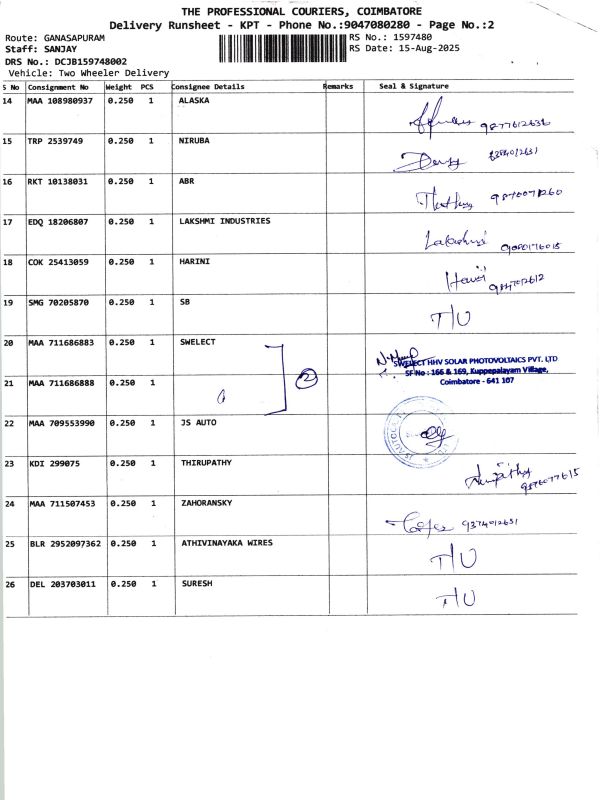 THE PROFESSIONAL COURIERS, COIMBATORE
Delivery Runsheet - KPT - Phone No.:9047080280 - Page No.:2
Route: GANASAPURAM RS No.: 1597480
Staff: SANJAY RS Date: 15-Aug-2025
DRS No.: DCJB159748002
Vehicle: Two Wheeler Delivery
S No Consignment No Weight PCS Consignee Details Remarks Seal & Signature
14 MAA 108980937 0.250 1 ALASKA
9877612636
15 TRP 2539749 0.250 1 NIRUBA
16 RKT 10138031 0.250 1 ABR
17 EDQ 18206807 0.250 1 LAKSHMI INDUSTRIES
Lakshmi
18 COK 25413059 0.250 1 HARINI
19 SMG 70205870 0.250 1 SB
T/U
20 MAA 711686883 0.250 1 SWELECT
SWELECT HHV SOLAR PHOTOVOLTAICS PVT. LTD
SF No : 166 & 169, Kuppepalayam Village,
Coimbatore - 641 107
21 MAA 711686888 0.250 1
2
22 MAA 709553990 0.250 1 JS AUTO
23 KDI 299075 1 THIRUPATHY
24 MAA 711507453 0.250 1 ZAHORANSKY
9374012651
25 BLR 2952097362 0.250 1 ATHIVINAYAKA WIRES
T/U
26 DEL 203703011 0.250 1 SURESH
T/U